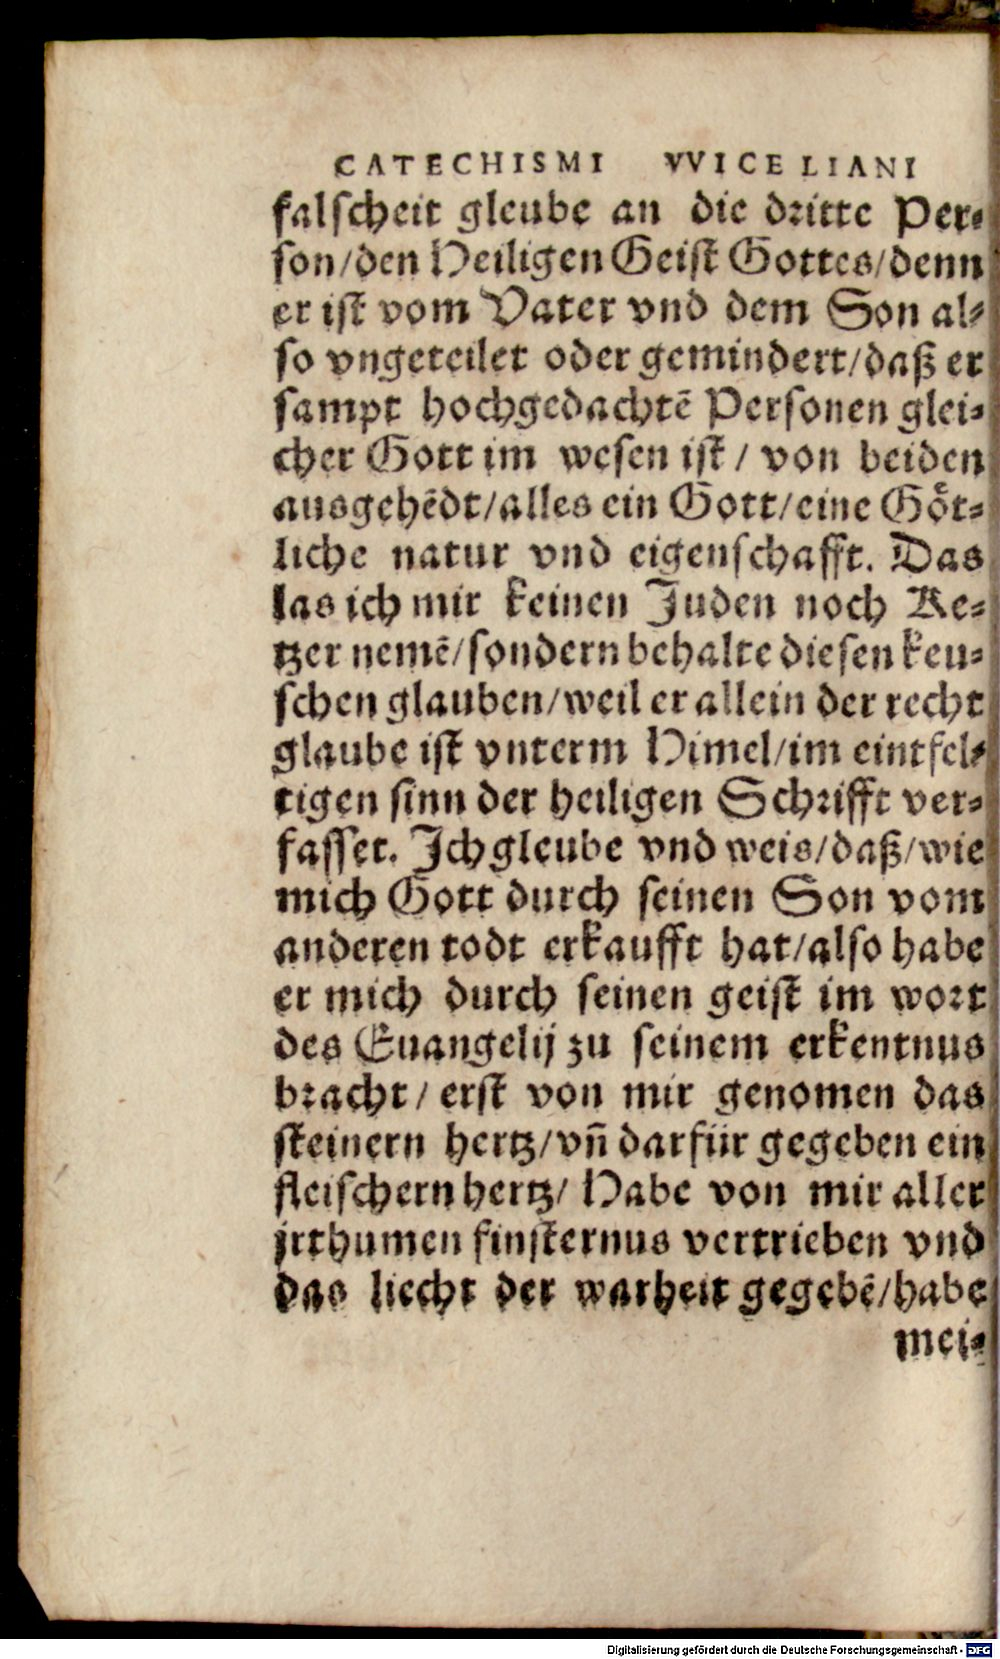 CATECHISMI VVICELIANI
falscheit gleube an die dritte Per⸗
son/den Heiligen Geist Gottes/denn
er ist vom Vater vnd dem Son al⸗
so vngeteilet oder gemindert/daß er
sampt hochgedachtē Personen glei⸗
cher Gott im wesen ist/ von beiden
ausgehēdt/alles ein Gott/eine Göt⸗
liche natur vnd eigenschafft. Das
las ich mir keinen Juden noch Ke⸗
tzer nemē/sondern behalte diesen keu⸗
schen glauben/weil er allein der recht
glaube ist vnterm Himel/im eintfel⸗
tigen sinn der heiligen Schrifft ver⸗
fasset. Ich gleube vnd weis/daß/wie
mich Gott durch seinen Son vom
anderen todt erkaufft hat/also habe
er mich durch seinen geist im wort
des Euangelij zu seinem erkentnus
bracht/ erst von mir genomen das
steinern hertz/vñ darfür gegeben ein
fleischern hertz/ Habe von mir aller
jrthumen finsternus vertrieben vnd
das liecht der warheit gegebē/habe
mei⸗
Digitalisierung gefördert durch die Deutsche Forschungsgemeinschaft - DFG